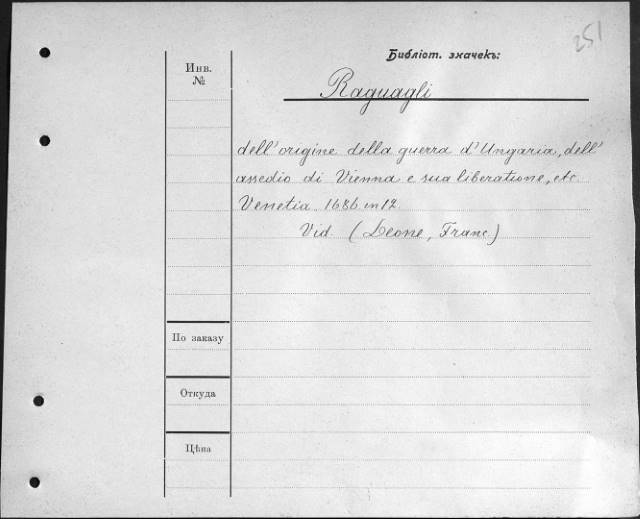 251
Библіот. значекъ:
Инв.
№
Raguagli
dell' origine della guerra d'Ungaria, dell'
assedio di Vienna e sua liberatione, etc.
Venetia 1686 in 12.
Vid. (Leone, Franc.)
По заказу
Откуда
Цѣна